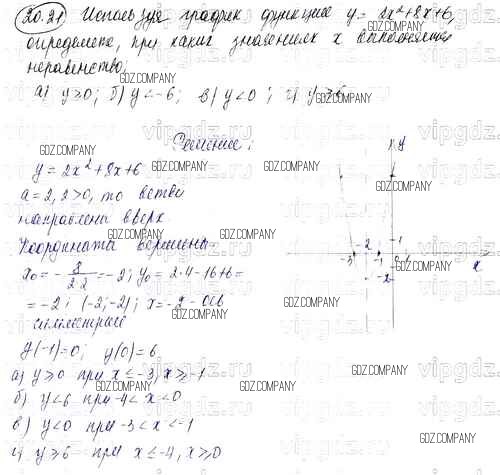 20.21 Используя график функции y = 2x²+8x+6,
определите, при каких значениях x выполняется
неравенство:
а) y≥0; б) y<-6; в) y<0; г) y≥6
GDZ.COMPANY
Решение:
y = 2x²+8x+6
a = 2, 2>0, то ветви
направлены вверх
Координата вершины
x₀ = -8/2·2 = -2; y₀ = 2·4-16+6=
= -2; (-2;-2); x=-2 - ось
симметрии
y(-1)=0; y(0)=6
а) y≥0 при x≤-3, x≥-1
б) y<6 при -4<x<0
в) y<0 при -3<x<-1
г) y≥6 при x≤-4, x≥0
y
1
-3 -2 -1 0
x
-2
vipgdz.ru